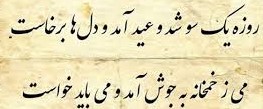 روزه یک سو شد و عید آمد و دل‌ها برخاست
می ز خمخانه به جوش آمد و می باید خواست